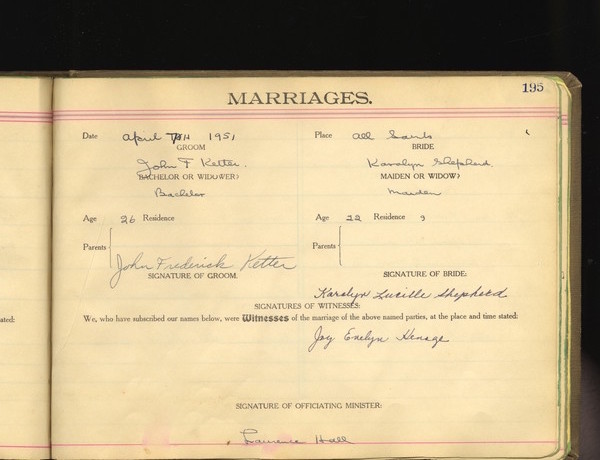 195
MARRIAGES.
Date April 7th 1951 Place All Saints
GROOM BRIDE
John F Ketter. Karolyn Shepherd.
BACHELOR OR WIDOWER? MAIDEN OR WIDOW?
Bachelor Maiden
Age 26 Residence Age 22 Residence
Parents Parents
John Frederick Ketter
SIGNATURE OF GROOM. SIGNATURE OF BRIDE:
Karolyn Lucille Shepherd
SIGNATURES OF WITNESSES:
ated: We, who have subscribed our names below, were Witnesses of the marriage of the above named parties, at the place and time stated:
Joy Evelyn
SIGNATURE OF OFFICIATING MINISTER:
Laurence Hall